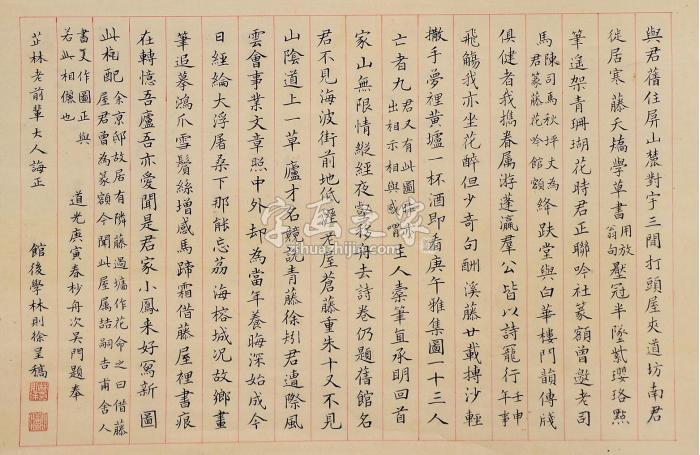 與君舊住屏山麓對宇三間打頭屋夾道坊南君
徙居寒藤夭矯學草書用放翁句壓冠半墜紫瓔珞點
筆遙架青珊瑚花時君正聯吟社篆額曾邀老司
馬陳司馬秋坪丈為君篆藤花吟館額絳趺堂與白華樓鬥韻傳牋
俱健者我攜眷屬游蓬瀛羣公皆以詩寵行壬申年事
飛觴我亦坐花醉但少奇句酬溪藤廿載摶沙輕
撒手夢裡黃壚一杯酒即看庚午雅集圖一十三人
亡者九君又有此圖出相示相與感歎生人橐筆直承明回首
家山無限情縱經夜壑移舟去詩卷仍題舊館名
君不見海波街前地低窪老屋蒼藤重朱十又不見
山陰道上一草廬才名競說青藤徐矧君遭際風
雲會事業文章照中外卻為當年養晦深始成今
日經綸大浮屠桑下那能忘荔海榕城況故鄉畫
筆追摹鴻爪雪鬢絲增感馬蹄霜借藤屋裡書痕
在轉憶吾廬吾亦愛聞是君家小鳳來好寫新圖
此枙配余京邸故居有隣藤過墻作花命之曰借藤屋君曾為篆額今聞此屋屬誥嗣吉甫舍人
書更作圖正與若此相儷也 道光庚寅春杪舟次吳門題奉
芷林老前輩大人誨正 館後學林則徐呈稿
字画之家
zihuazhijia.com